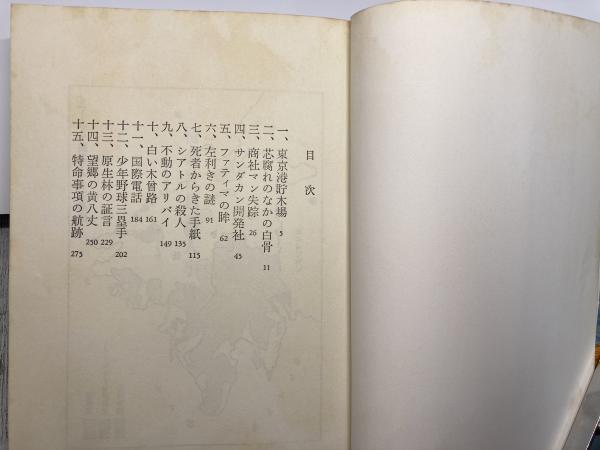 目次
一、東京港貯木場 5
二、芯腐れのなかの白骨 11
三、商社マン失踪 26
四、サンダカン開発社 45
五、ファティマの眸 62
六、左利きの謎 91
七、死者からきた手紙 115
八、シアトルの殺人 135
九、不動のアリバイ 149
十、白い木曾路 161
十一、国際電話 184
十二、少年野球三塁手 202
十三、原生林の証言 229
十四、望郷の黄八丈 250
十五、特命事項の航跡 275